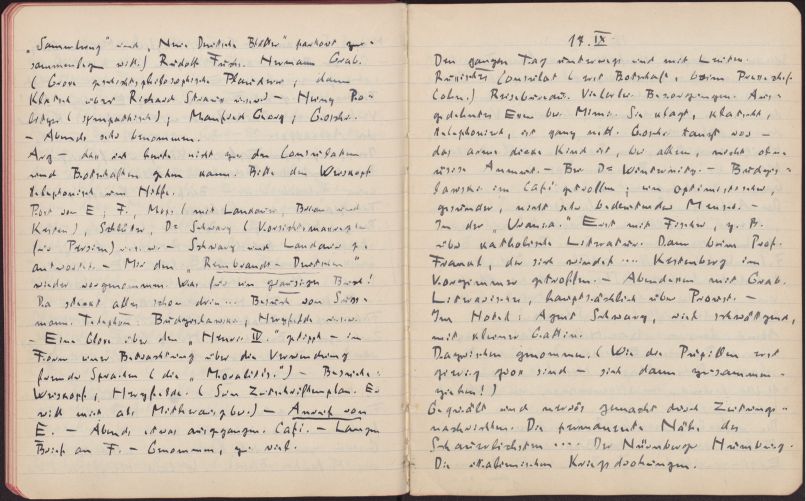 „Sammlung" und „Neue Deutsche Blätter"
sammenlegen will.) Rudolf Fuchs. Hermann Grab.
(Grosse geschichtsphilosophische Plauderei; dann
Klatsch über Richard Strauss u.s.w.) –
(sympathisch); Manfred Georg; Gosch.
– Abends sehr benommen.
Arg – dass ich heute nicht zu den Consulaten
und Botschaften gehen kann. Bitte den Weiskopf
telephonisch um Hilfe.
Post von E; F., Mops (mit Landauer, Brian und
Kesten), Schlüter, Dr Schwarz (Vorsichtsmassregeln
für Persien) u.s.w. – Schwarz und Landauer
antwortet. – Mir den „Rembrandt-Deutschen"
wieder vorgenommen. Was für ein grausiges Buch!
Da steht alles schon drin... Besuch von Süss-
mann. Telephon: Budzislawski, Herzfelde u.s.w.
– Eine Glosse über den „Henri IV." getippt – in
Form einer Betrachtung über die Verwendung
fremder Sprachen (die „Moralités".) – Besuche:
Weiskopf, Herzfelde. (Sein Zeitschriftenplan. Er
will mich als Mitherausgeber.) – Anruf von
E. – Abends etwas ausgegangen. Café. – Langen
Brief an F. – Genommen, viel.
17. IX.
Den ganzen Tag unterwegs und mit Leuten.
Russisches Consulat (erst Botschaft, beim Pressechef
Reisebureau. Vielerlei Besorgungen. Aus-
gedehntes Essen bei Mimi. Sie klagt, klatscht,
telephoniert, ist ganz nett. Gosch tanzt vor –
das arme dicke Kind ist, bei allem, nicht ohne
Anmut. – Bei Dr Winternitz. – Budzis-
lawski im Café getroffen; ein optimistischer,
gesunder, nicht sehr bedeutender Mensch. –
In der „Urania." Erst mit Fischer,
über katholische Literatur. Dann beim Prof.
Frankl, der sich windet.... Kestenberg im
Vorzimmer getroffen. – Abendessen mit Grab.
Literarisches, hauptsächlich über Proust. –
Im Hotel: Agent Schwarz, viel schwätzend,
mit kleiner Gattin.
Dazwischen genommen. (Wie die Pupillen erst
gierig gross sind – sich dann zusammen-
ziehen!)
Gequält und nervös gemacht durch Zeitungs-
nachrichten. Die permanente Nähe des
Schauerlichsten .... Der Nürnberger
Die italienischen Kriegsdrohungen.